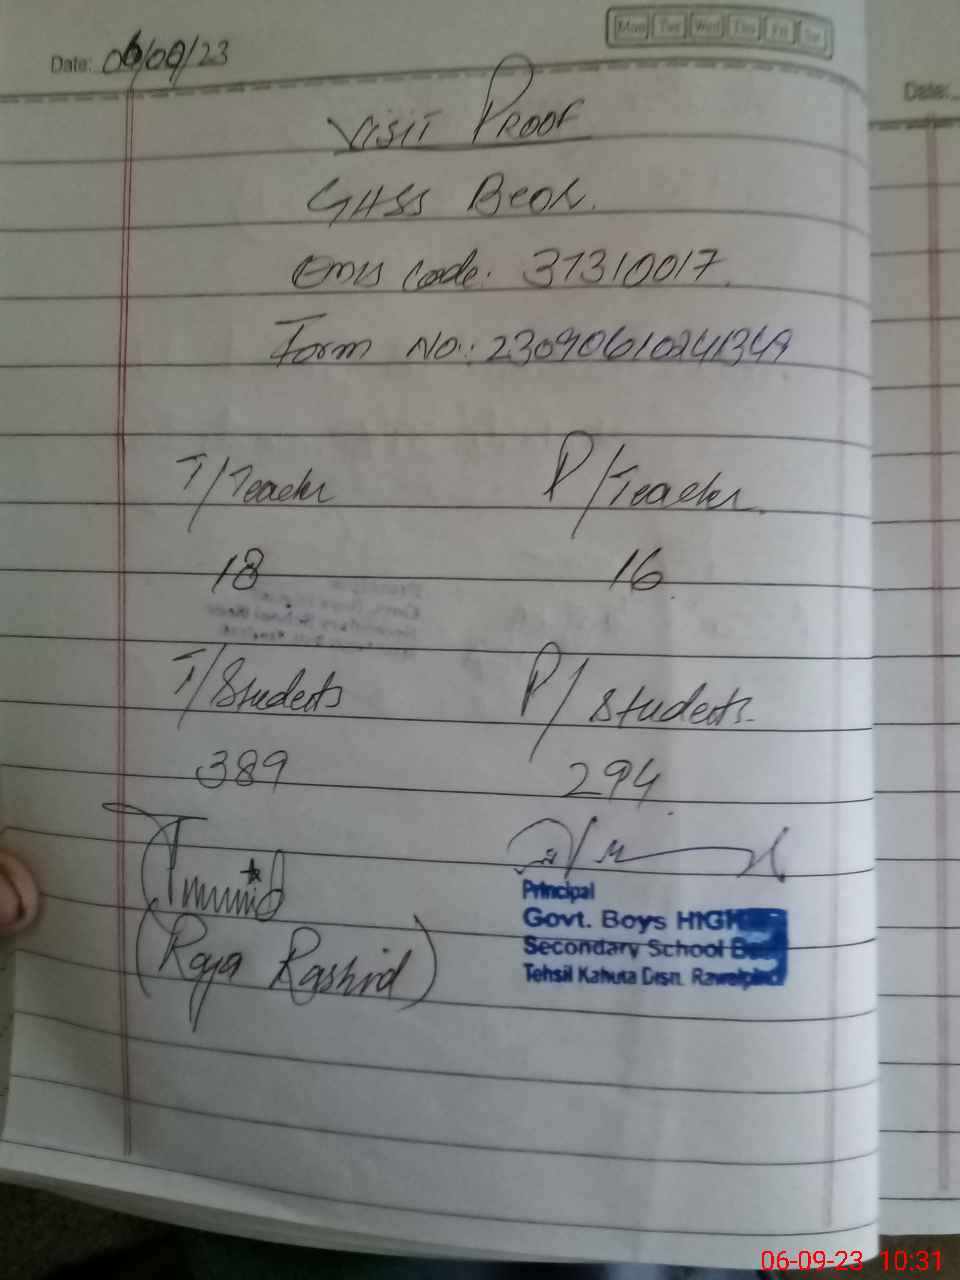 Mon Tue Wed Thu Fri Sat
Date: 06/09/23
Date:
Visit Proof
GHSS Beor.
Emis Code: 37310017.
Form No.: 23090610241349
T/Teacher P/Teacher.
18 16
T/Students P/Students.
389 294
(Raja Rashid)
Principal
Govt. Boys HIGH
Secondary School
Tehsil Kahuta Distt. Rawalpindi
06-09-23 10:31